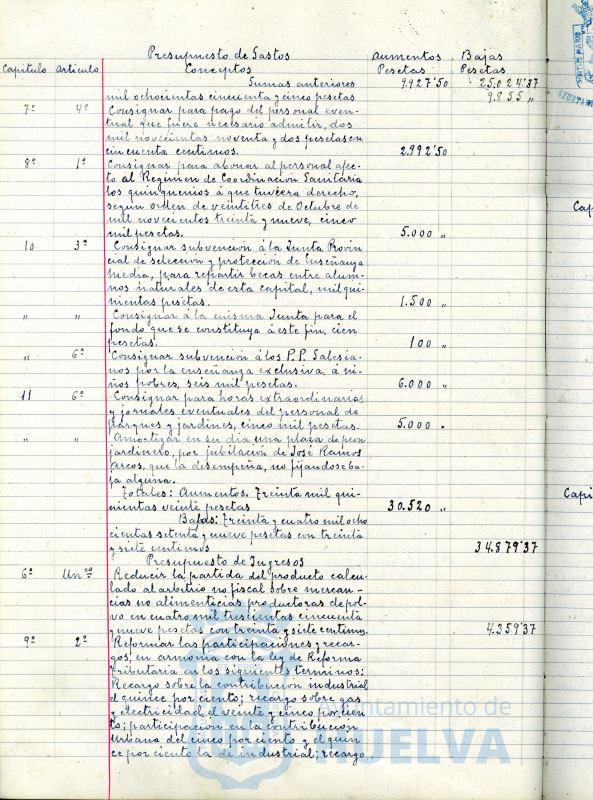 Presupuesto de Gastos Aumentos Bajas
Capitulo Articulo Conceptos Pesetas Pesetas
Sumas anteriores 9.927'50 25.024'37
mil ochocientas cincuenta y cinco pesetas 9.855 "
7º 4º Consignar para pago del personal even-
tual que fuere necesario admitir, dos
mil novecientas noventa y dos pesetas con
cincuenta centimos. 2.992'50
8º 1º Consignar para abonar al personal afec-
to al Regimen de Coordinación Sanitaria
los quinquenios á que tuviera derecho,
según orden de veintitres de Octubre de
mil novecientos treinta y nueve, cinco
mil pesetas. 5.000 "
10 3º Consignar subvención á la Junta Provin-
cial de selección y protección de Enseñanza
Media, para repartir becas entre alum-
nos naturales de esta capital, mil qui-
nientas pesetas. 1.500 "
" " Consignar á la misma Junta para el
fondo que se constituya á este fin, cien
pesetas. 100 "
" 6º Consignar subvención á los P.P. Salesia-
nos por la enseñanza exclusiva á ni-
ños pobres, seis mil pesetas. 6.000 "
11 6º Consignar para horas extraordinarias
y jornales eventuales del personal de
parques y jardines, cinco mil pesetas. 5.000 "
" " Amortizar en su dia una plaza de peon
jardinero, por jubilación de José Ramos
Arcos, que la desempeña, no fijandose ba-
ja alguna.
Totales: Aumentos. Treinta mil qui-
nientas veinte pesetas 30.520 "
Bajas: Treinta y cuatro mil ocho
cientas setenta y nueve pesetas con treinta
y siete centimos 34.879'37
Presupuesto de Ingresos
6º Unco Reducir la partida del producto calcu-
lado al arbitrio no fiscal sobre mercan-
cias no alimenticias productoras de pol-
vo en cuatro mil trescientas cincuenta
y nueve pesetas con treinta y siete centims. 4.359'37
9º 2º Reformar las participaciones y recar-
gos, en armonia con la ley de Reforma
Tributaria en los siguientes terminos:
Recargo sobre la contribución industrial
el quince por ciento; recargo sobre gas
y electricidad el veinte y cinco por cien
to; participación en la contribución
Urbana del cinco por ciento y el quin
ce por ciento la de industrial; recargo
Cap
Capi
Ayuntamiento de
HUELVA